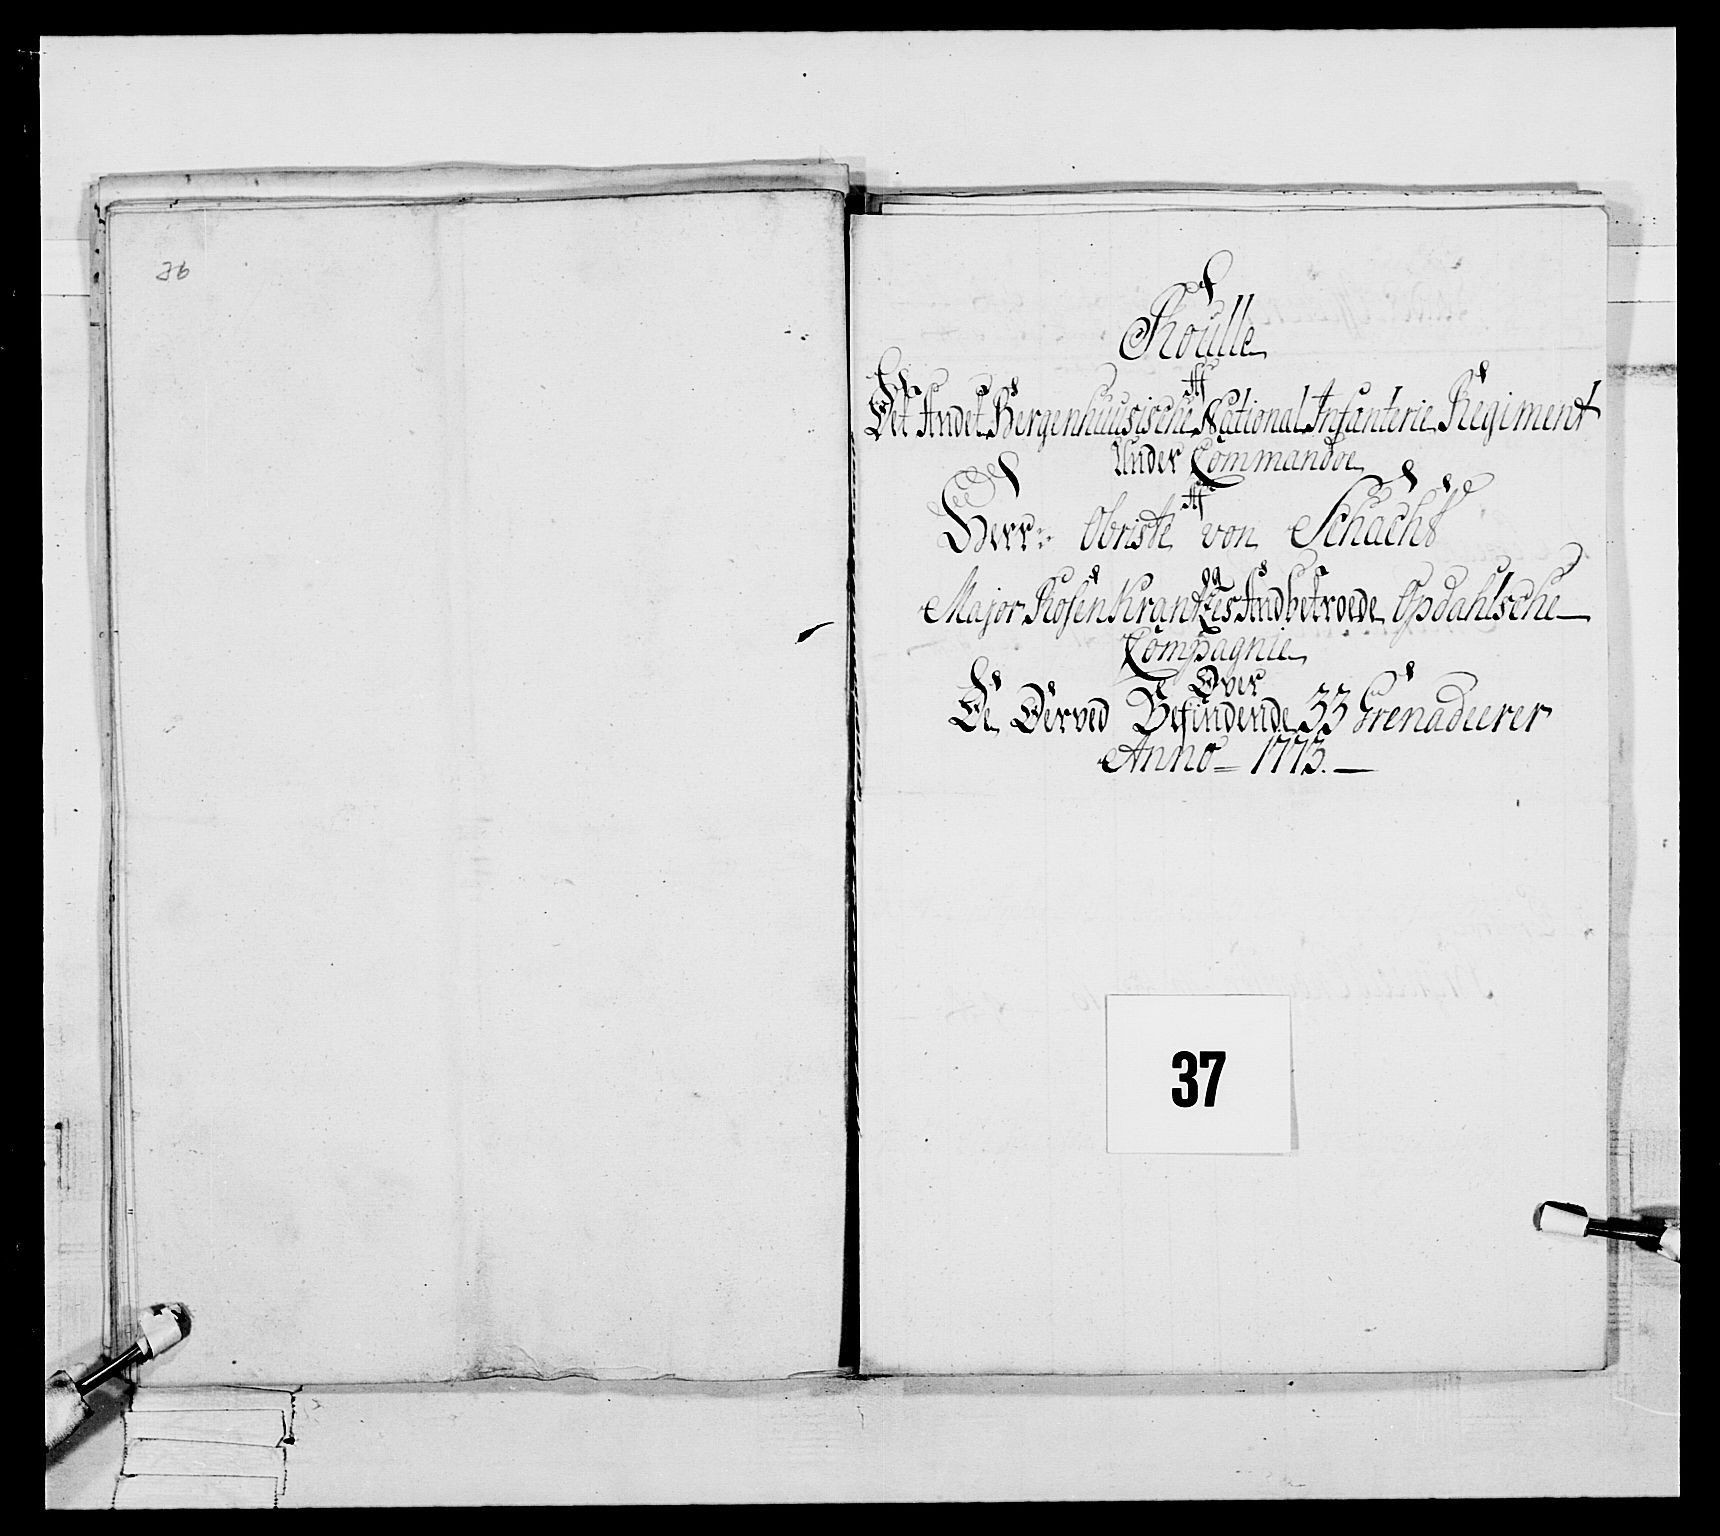 36
Roulle
Af
Det Andet Bergenhuusische National Infanterie Regiment
Under Commandoe
Af
Herr: Obriste von Schacht
og
Major RosenKrantzes Andbetroede Opdahlsche
Compagnie
Over
De Derved Befindende 33 Grenadeerer
Anno 1773.
37